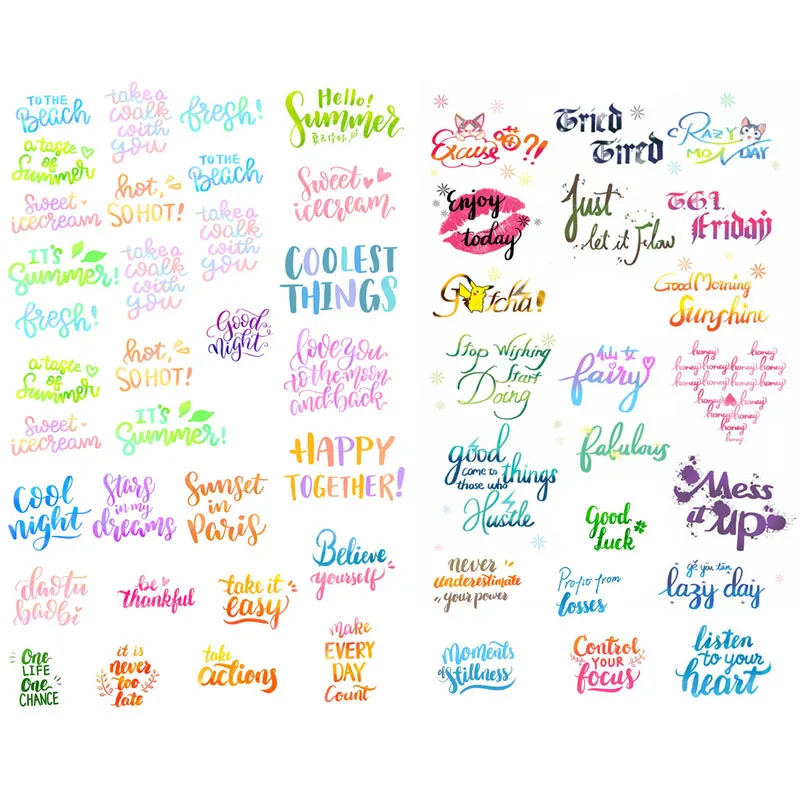 TO THE
Beach
take a
walk
with
you
fresh!
Hello!
Summer
夏天你好
a taste
of
Summer
TO THE
Beach
Sweet
icecream
hot,
SO HOT!
Sweet
icecream
take a
walk
with
you
IT'S
Summer!
take a
walk
with
you
COOLEST
THINGS
fresh!
Good
night
a taste
of
Summer
hot,
SO HOT!
love you
to the moon
and back
Sweet
icecream
IT'S
Summer!
HAPPY
TOGETHER!
Cool
night
Stars
in my
dreams
Sunset
in
Paris
Believe
yourself
daotu
baobi
be
thankful
take it
easy
make
EVERY
DAY
Count
ONE
LIFE
One
CHANCE
it is
never
too
late
take
actions
Excuse
?!
Tried
Tired
CRAZY
MONDAY
Enjoy
today
Just
let it Flow
TGI.
Friday
Gotcha!
Good Morning
Sunshine
Stop Wishing
Start
Doing
仙女
fairy
honey
honey
honey honey
honey honey honey
honey honey
honey honey
honey
honey
good
come to things
those who
Hustle
fabulous
Good
Luck
Mess
it up
never
underestimate
your power
Profit from
losses
gě yōu tān
lazy day
Moments
of Stillness
Control
YOUR
focus
listen
to your
heart